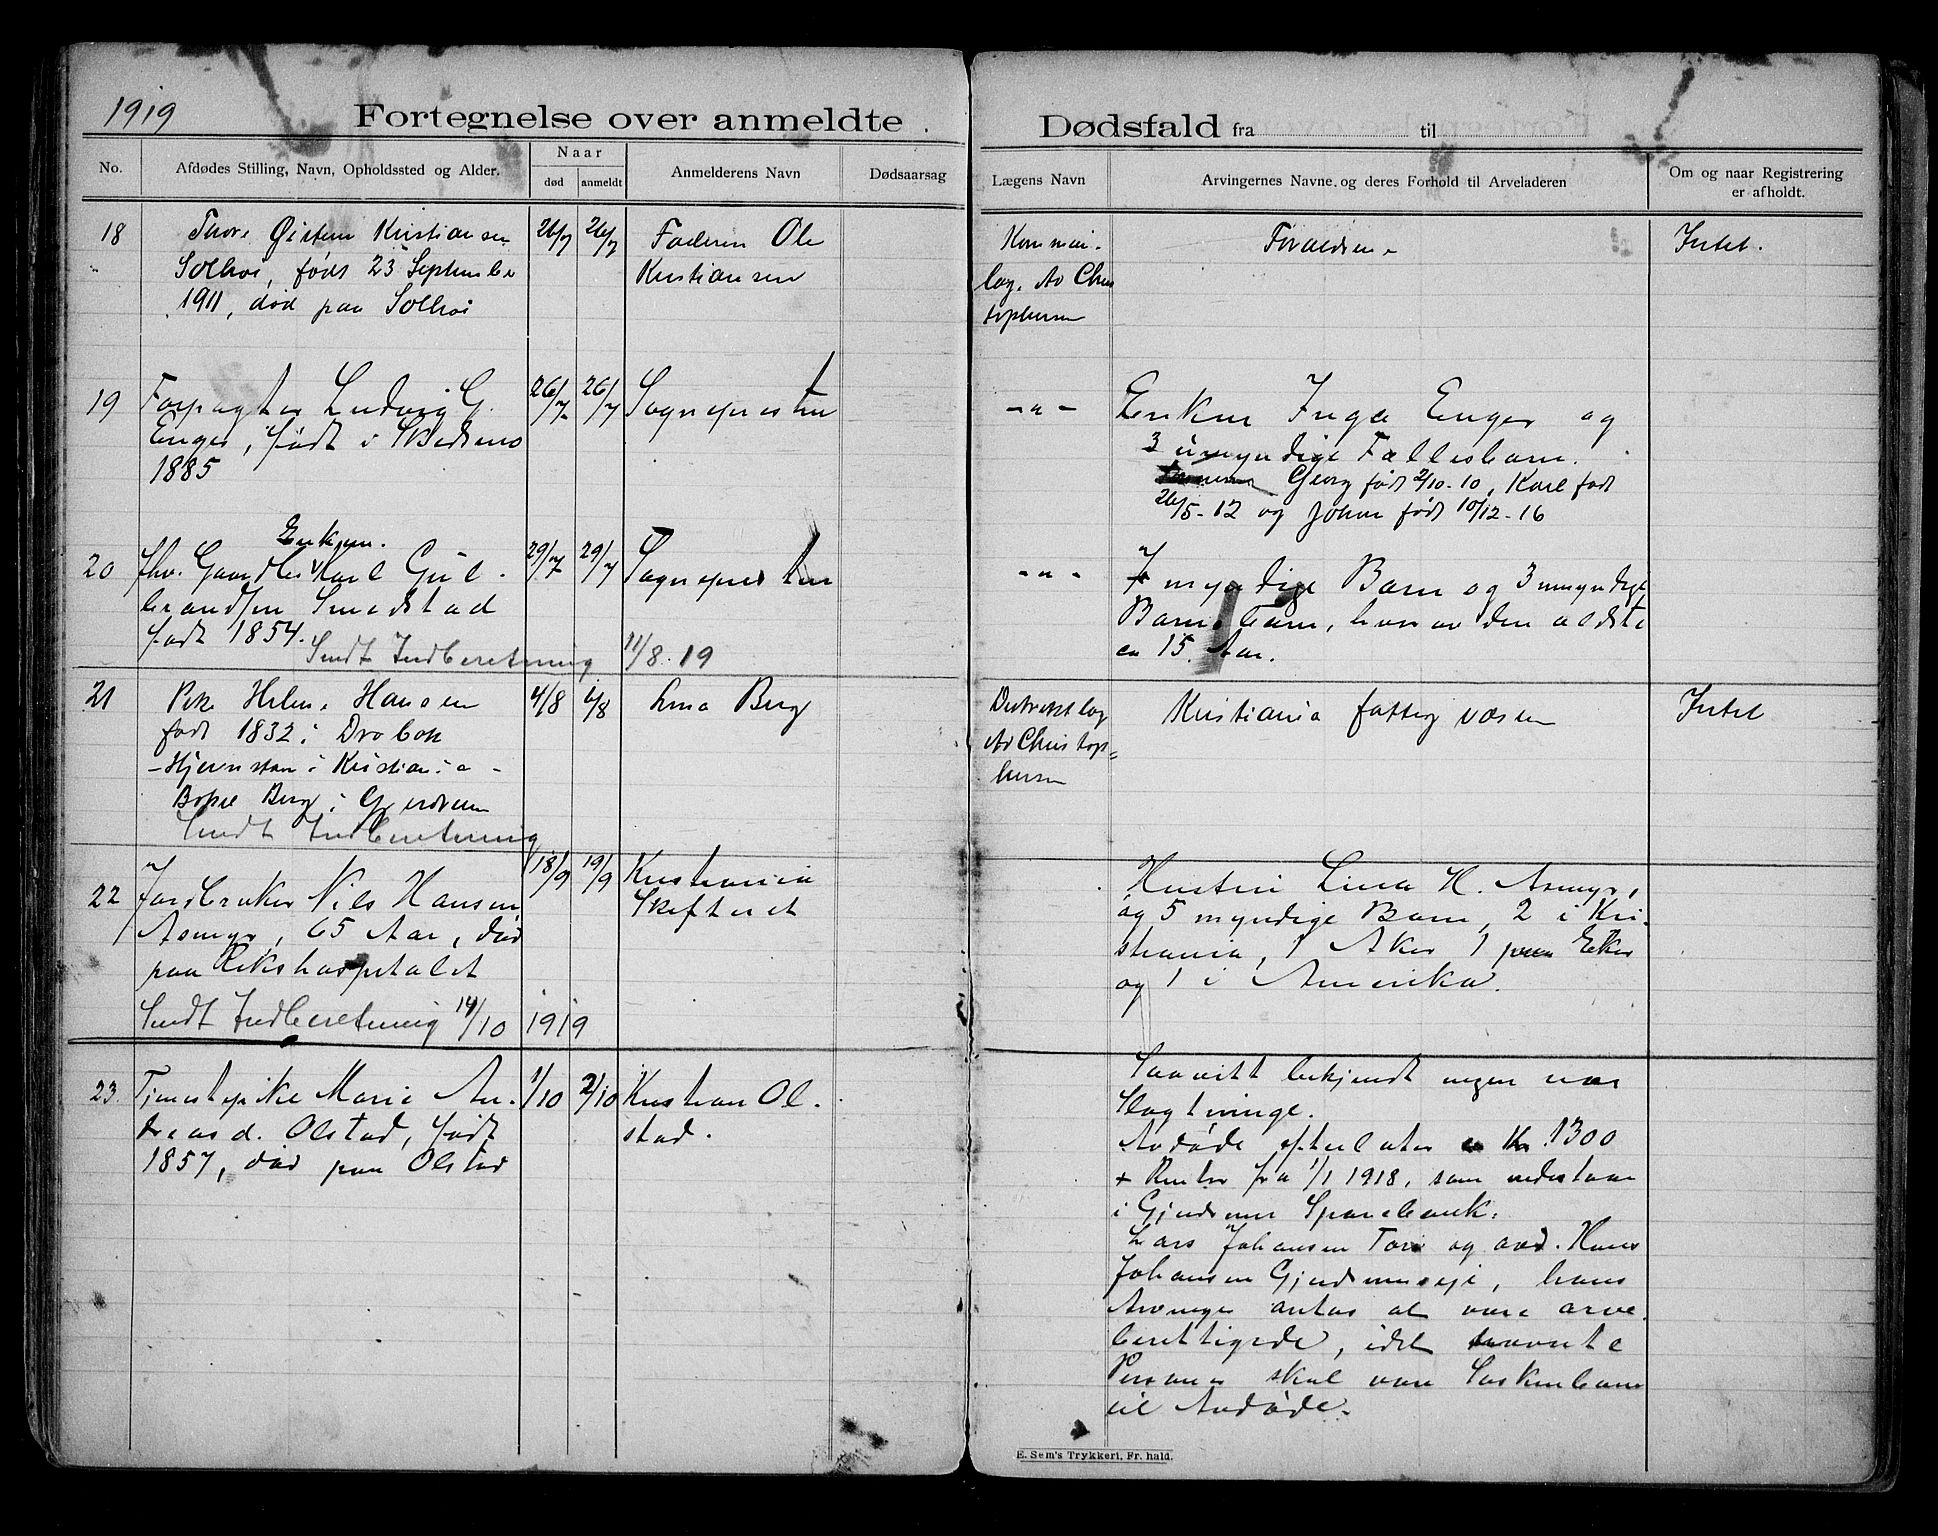 1919
Fortegnelse over anmeldte
No.
Afdødes Stilling, Navn, Opholdssted og Alder.
Naar
død
anmeldt
Anmelderens Navn
Dødsaarsag
18
Thore Øistein Kristiansen
Solhøi, født 23 September
1911, død paa Solhøi
26/7
26/7
Faderen Ole
Kristiansen
19
Forpagter Ludvig G.
Enger, født i Skedsmo
1885
26/7
26/7
Sognepresten
20
Enken.
fhv. Gaardbr. v Karl Gul-
brandsen Smedstad
født 1854.
29/7
29/7
Sognepresten
Sendt Indberetning 11/8. 19
21
Pike Helene Hansen
født 1832 i Drøbak
- Hjemstavn i Kristiania -
Bopæl Berg i Gjerdrum
Sendt Indberetning
4/8
6/8
Lina Berg
22
Jordbruker Nils Hansen
Asmyr, 65 Aar, død
paa Rikshospitalet
18/9
19/9
Kristiania
Skifteret
Sendt Indberetning 14/10 1919
23.
Tjenestepike Marie An-
dreasd. Olstad, født
1857, død paa Olstad
1/10
2/10
Kristian Ol-
stad.
Dødsfald fra til
Lægens Navn
Arvingernes Navne og deres Forhold til Arveladeren
Om og naar Registrering
er afholdt.
Kommu-
læg. Av Chris
tophersen
Forældrene
Intet.
- " -
Enken Inga Enger og
3 umyndige Fællesbarn.
Georg født 2/10-10, Karl født
26/5-12 og Johan født 10/12-16
- " -
7 myndige Barn og 3 umyndige
Barnebarn, hvorav den ældste
er 15 Aar.
Distriktslæg
Av Christop-
hersen
Kristiania fattigvæsen
Intet
Hustru Lina H. Asmyr,
og 5 myndige Barn, 2 i Kri-
stiania, 1 Aker 1 paa Eker
og 1 i Amerika.
Saavitt bekjendt ingen nær
Slægtninge.
Avdøde efterlater Kr 1300
+ Renter fra 1/1 1918, som indestaar
i Gjerdrum Sparebank.
Lars Johansen og avd. Hans
Johansen Gjerdrumseie, hans
Arvinger antas at være arve
berettigede, idet nævnte
Personer skal være Søskenbarn
til Avdøde.
E. Sem's Trykkeri, Fr.hald.